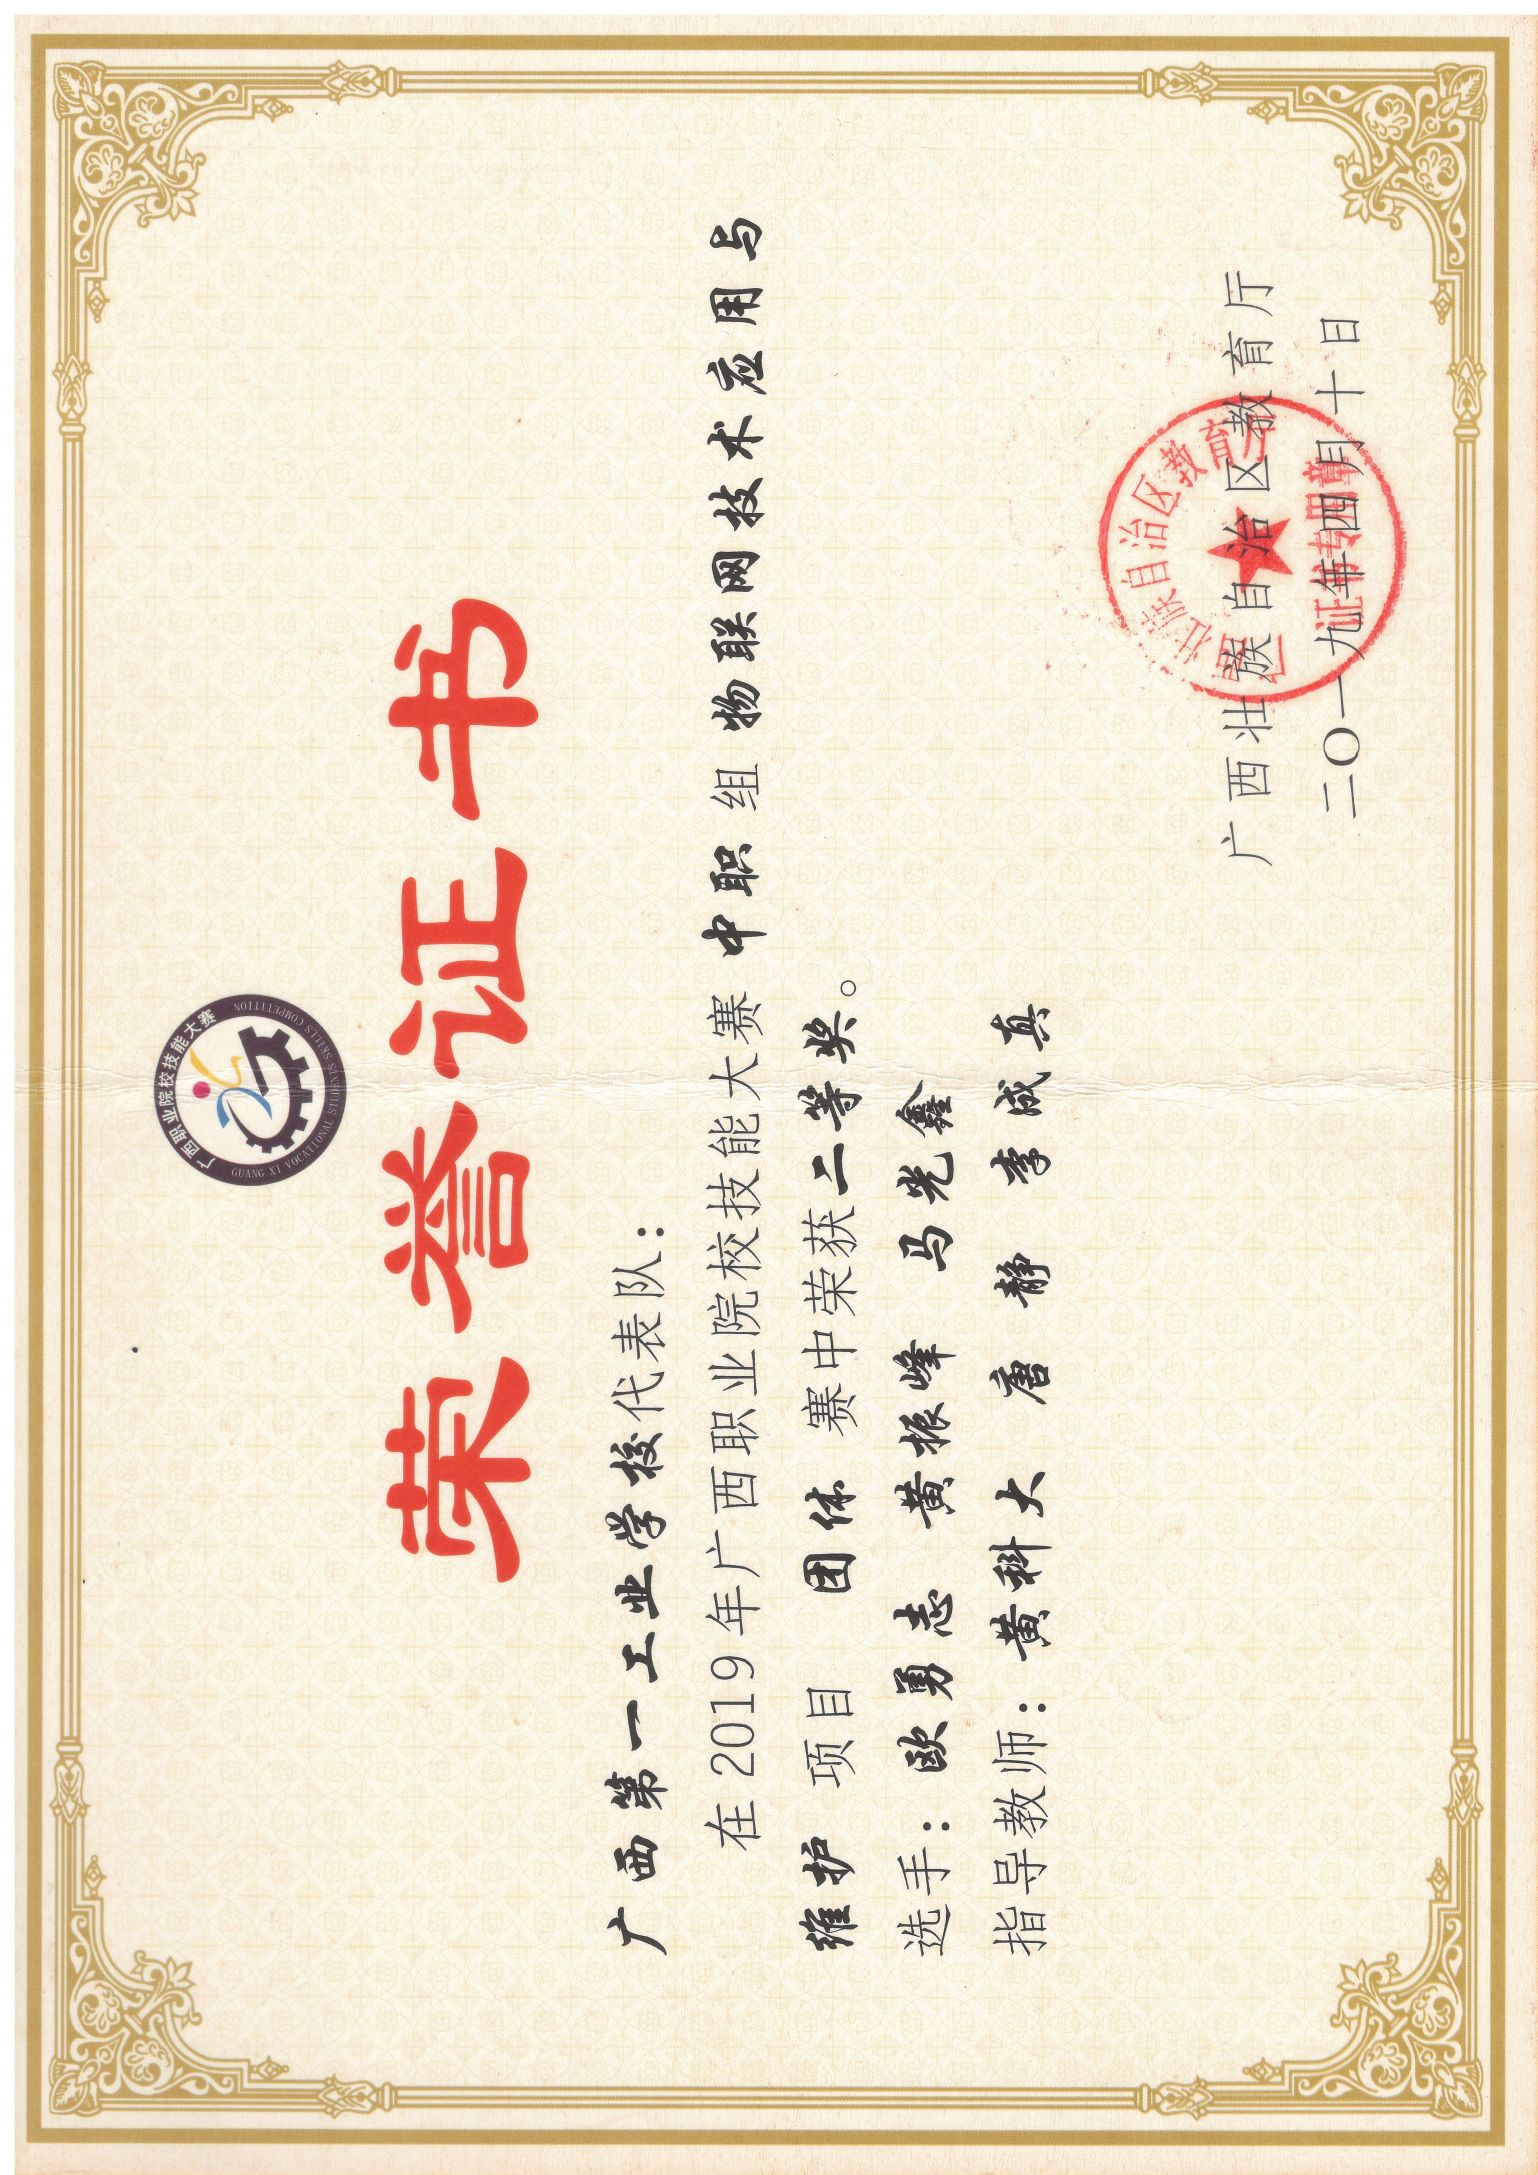 广西职业院校技能大赛
GUANG XI VOCATIONAL STUDENTS SKILLS COMPETITION
荣誉证书
广西第一工业学校代表队：
在2019年广西职业院校技能大赛 中职 组 物联网技术应用与
维护 项目 团体 赛中荣获二等奖。
选手：欧勇志 黄振峰 马光鑫
指导教师：黄科大 唐静 李成真
广西壮族自治区教育厅
二〇一九年四月十日
广西壮族自治区教育厅
证书专用章